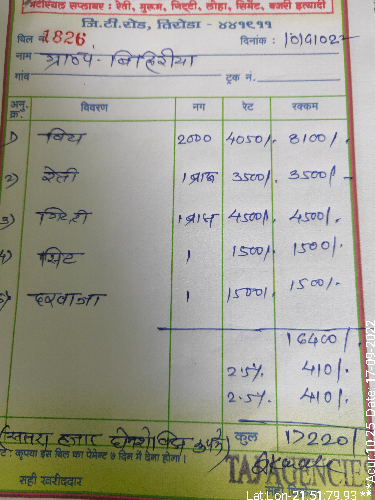 मटेरियल सप्लायर : रेती, मुरूम, गिट्टी, लोहा, सिमेंट, बजरी इत्यादी
जि.टी.रोड, तिरोडा - ४४१९११
बिल नं 1826 दिनांक :
नाम ग्रा०पं०- बिहिरीया
गांव ट्रक नं.
अनु. क्र. विवरण नग रेट रक्कम
1) 2000 4050/. 8100/.
2) रेती 1 ब्रास 3500/. 3500/-
3) गिट्टी 1 ब्रास 4500/. 4500/.
4) सिट 1 1500/. 1500/.
5) दरवाजा 1 1500/. 1500/.
16400/.
2.5% 410/.
2.5% 410/.
हजार दोनशे वीस रुपये कुल 17220/
टे: कृपया इस बिल का पेमेन्ट ७ दिन में देना होगा।
सही खरीददार
Date: 17-09-2022
Lat Lon-21.51.79.93